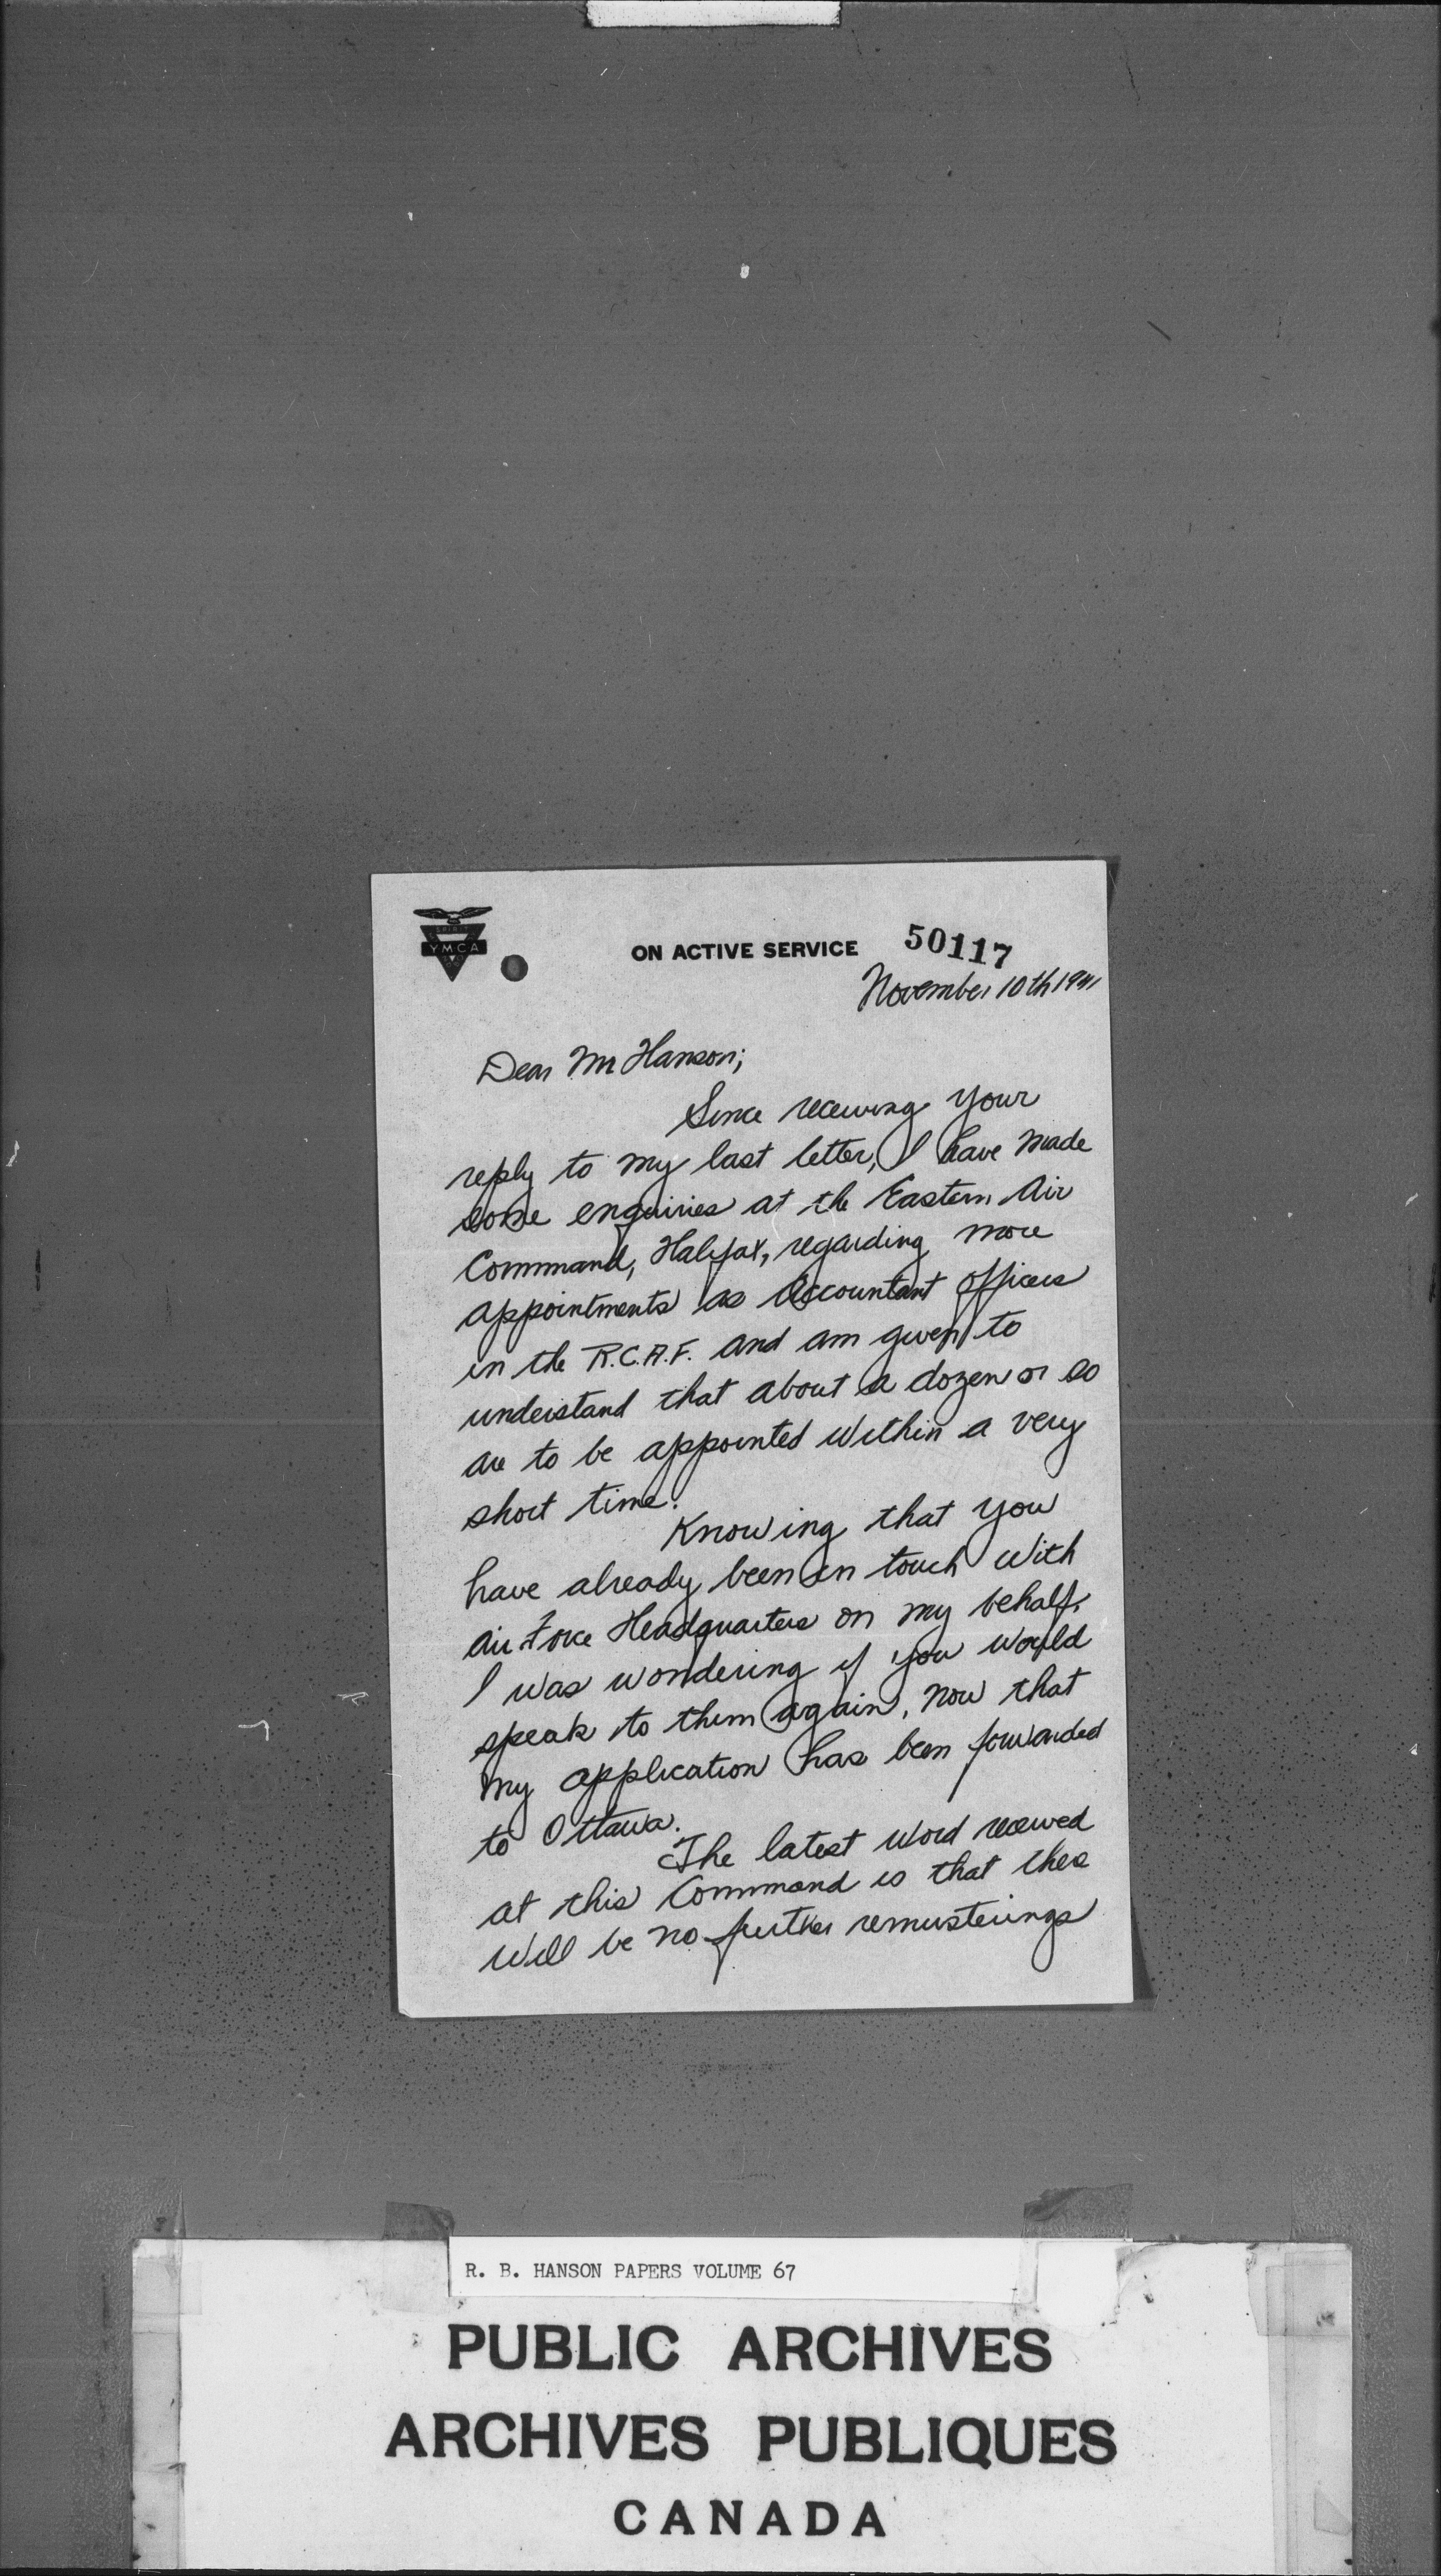 SPIRIT
YMCA
ON ACTIVE SERVICE
50117
November 10th 1941
Dear Mr Hanson;
Since receiving your
reply to my last letter, I have made
some enquiries at the Eastern Air
Command, Halifax, regarding more
appointments as Accountant officers
in the R.C.A.F. and am given to
understand that about a dozen or so
are to be appointed within a very
short time.
Knowing that you
have already been in touch with
Air Force Headquarters on my behalf,
I was wondering if you would
speak to them again, now that
my application has been forwarded
to Ottawa.
The latest word received
at this Command is that there
will be no further remusterings
R. B. HANSON PAPERS VOLUME 67
PUBLIC ARCHIVES
ARCHIVES PUBLIQUES
CANADA